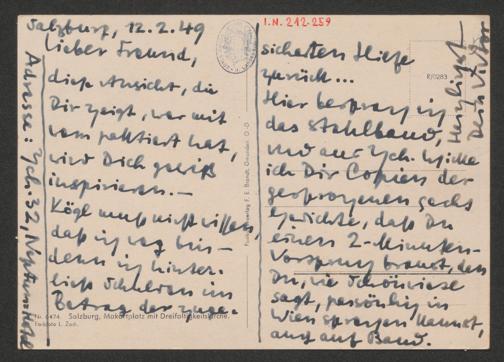 Salzburg, 12.2.49
Lieber Freund,
diese Ansicht, die
Dir zeigt, wer mit
wem paktiert hat,
wird Dich gewiß
inspirieren.—
Kögl muß nicht wissen,
daß ich weg bin –
denn ich hinter-
ließ Schulden im
Betrag der zuge-
Adresse: Zch. 32, Neptun
Nr. 6474 Salzburg, Makartplatz mit Dreifaltigkeitskirche.
Verlag F. E. Brandt, Gmunden, O.-Ö.
I.N. 212-259
sicherten Hilfe
zurück...
Hier besprach ich
das Stahlband,
und aus Zch. schicke
ich Dir Copien der
gesprochenen sechs
Gedichte, daß Du
einen 2-Minuten-
Vorsprung hast, den
Du, wie Schönwiese
sagt, persönlich in
Wien sprechen kannst,
auch auf Band.
Herzlichst
Dein Victor
R/0283